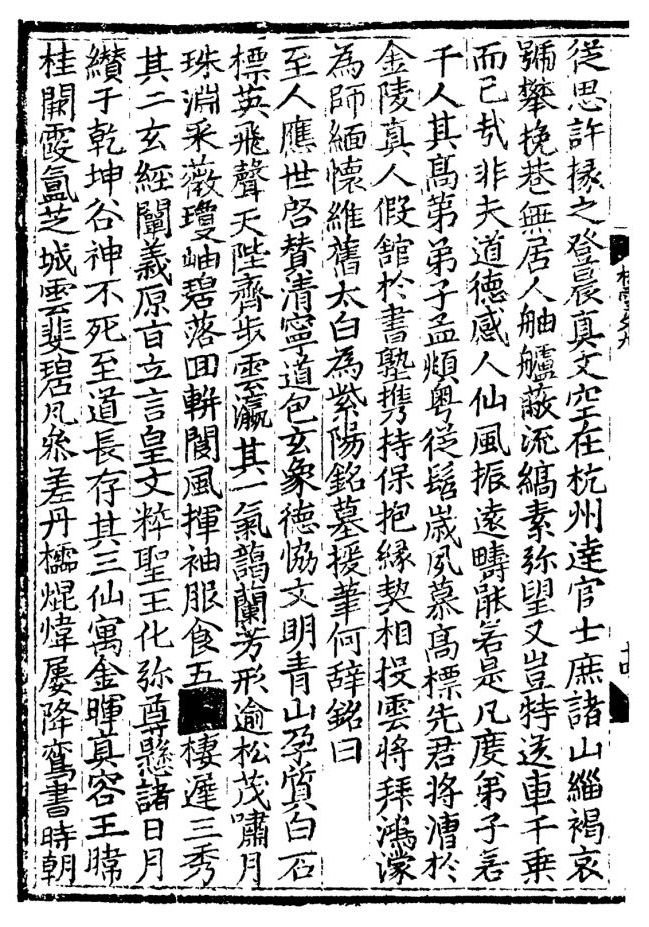 從思許掾之登晨真文空在杭州達官士庶諸山緇褐哀
號攀挽巷無居人舳艫蔽流縞素弥望又豈特送車千乗
而已㢤非夫道德感人仙風振遠疇能若是凡度弟子若
千人其髙第弟子孟頫粤從髫嵗夙慕髙標先君将漕於
金陵真人假舘於書塾携持保抱縁契相投雲将拜鴻濛
為師緬懷維舊太白為紫陽銘墓援筆何辞銘曰
至人應世啓賛清寧道包玄象德恊文明青山孕質白石
標英飛聲天陛齊步雲瀛其一氣藹蘭芳形逾松茂嘯月
珠淵采薇瓊岫碧落回輧閬風揮袖服食五■棲遲三秀
其二玄經闡義原㫖立言皇文粹聖王化弥尊懸諸日月
纉于乾坤谷神不死至道長存其三仙寓金暉真容王暐
桂闕霞氳芝城雲斐碧凡叅差丹櫺焜煒屢降鸞書時朝